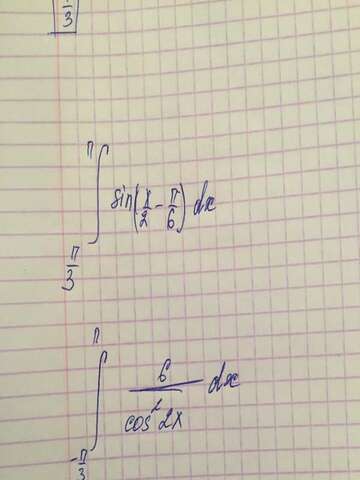 π/3
∫_{π/3}^{π} sin(x/2 - π/6) dx
∫_{-π/3}^{π} 6/cos²2x dx